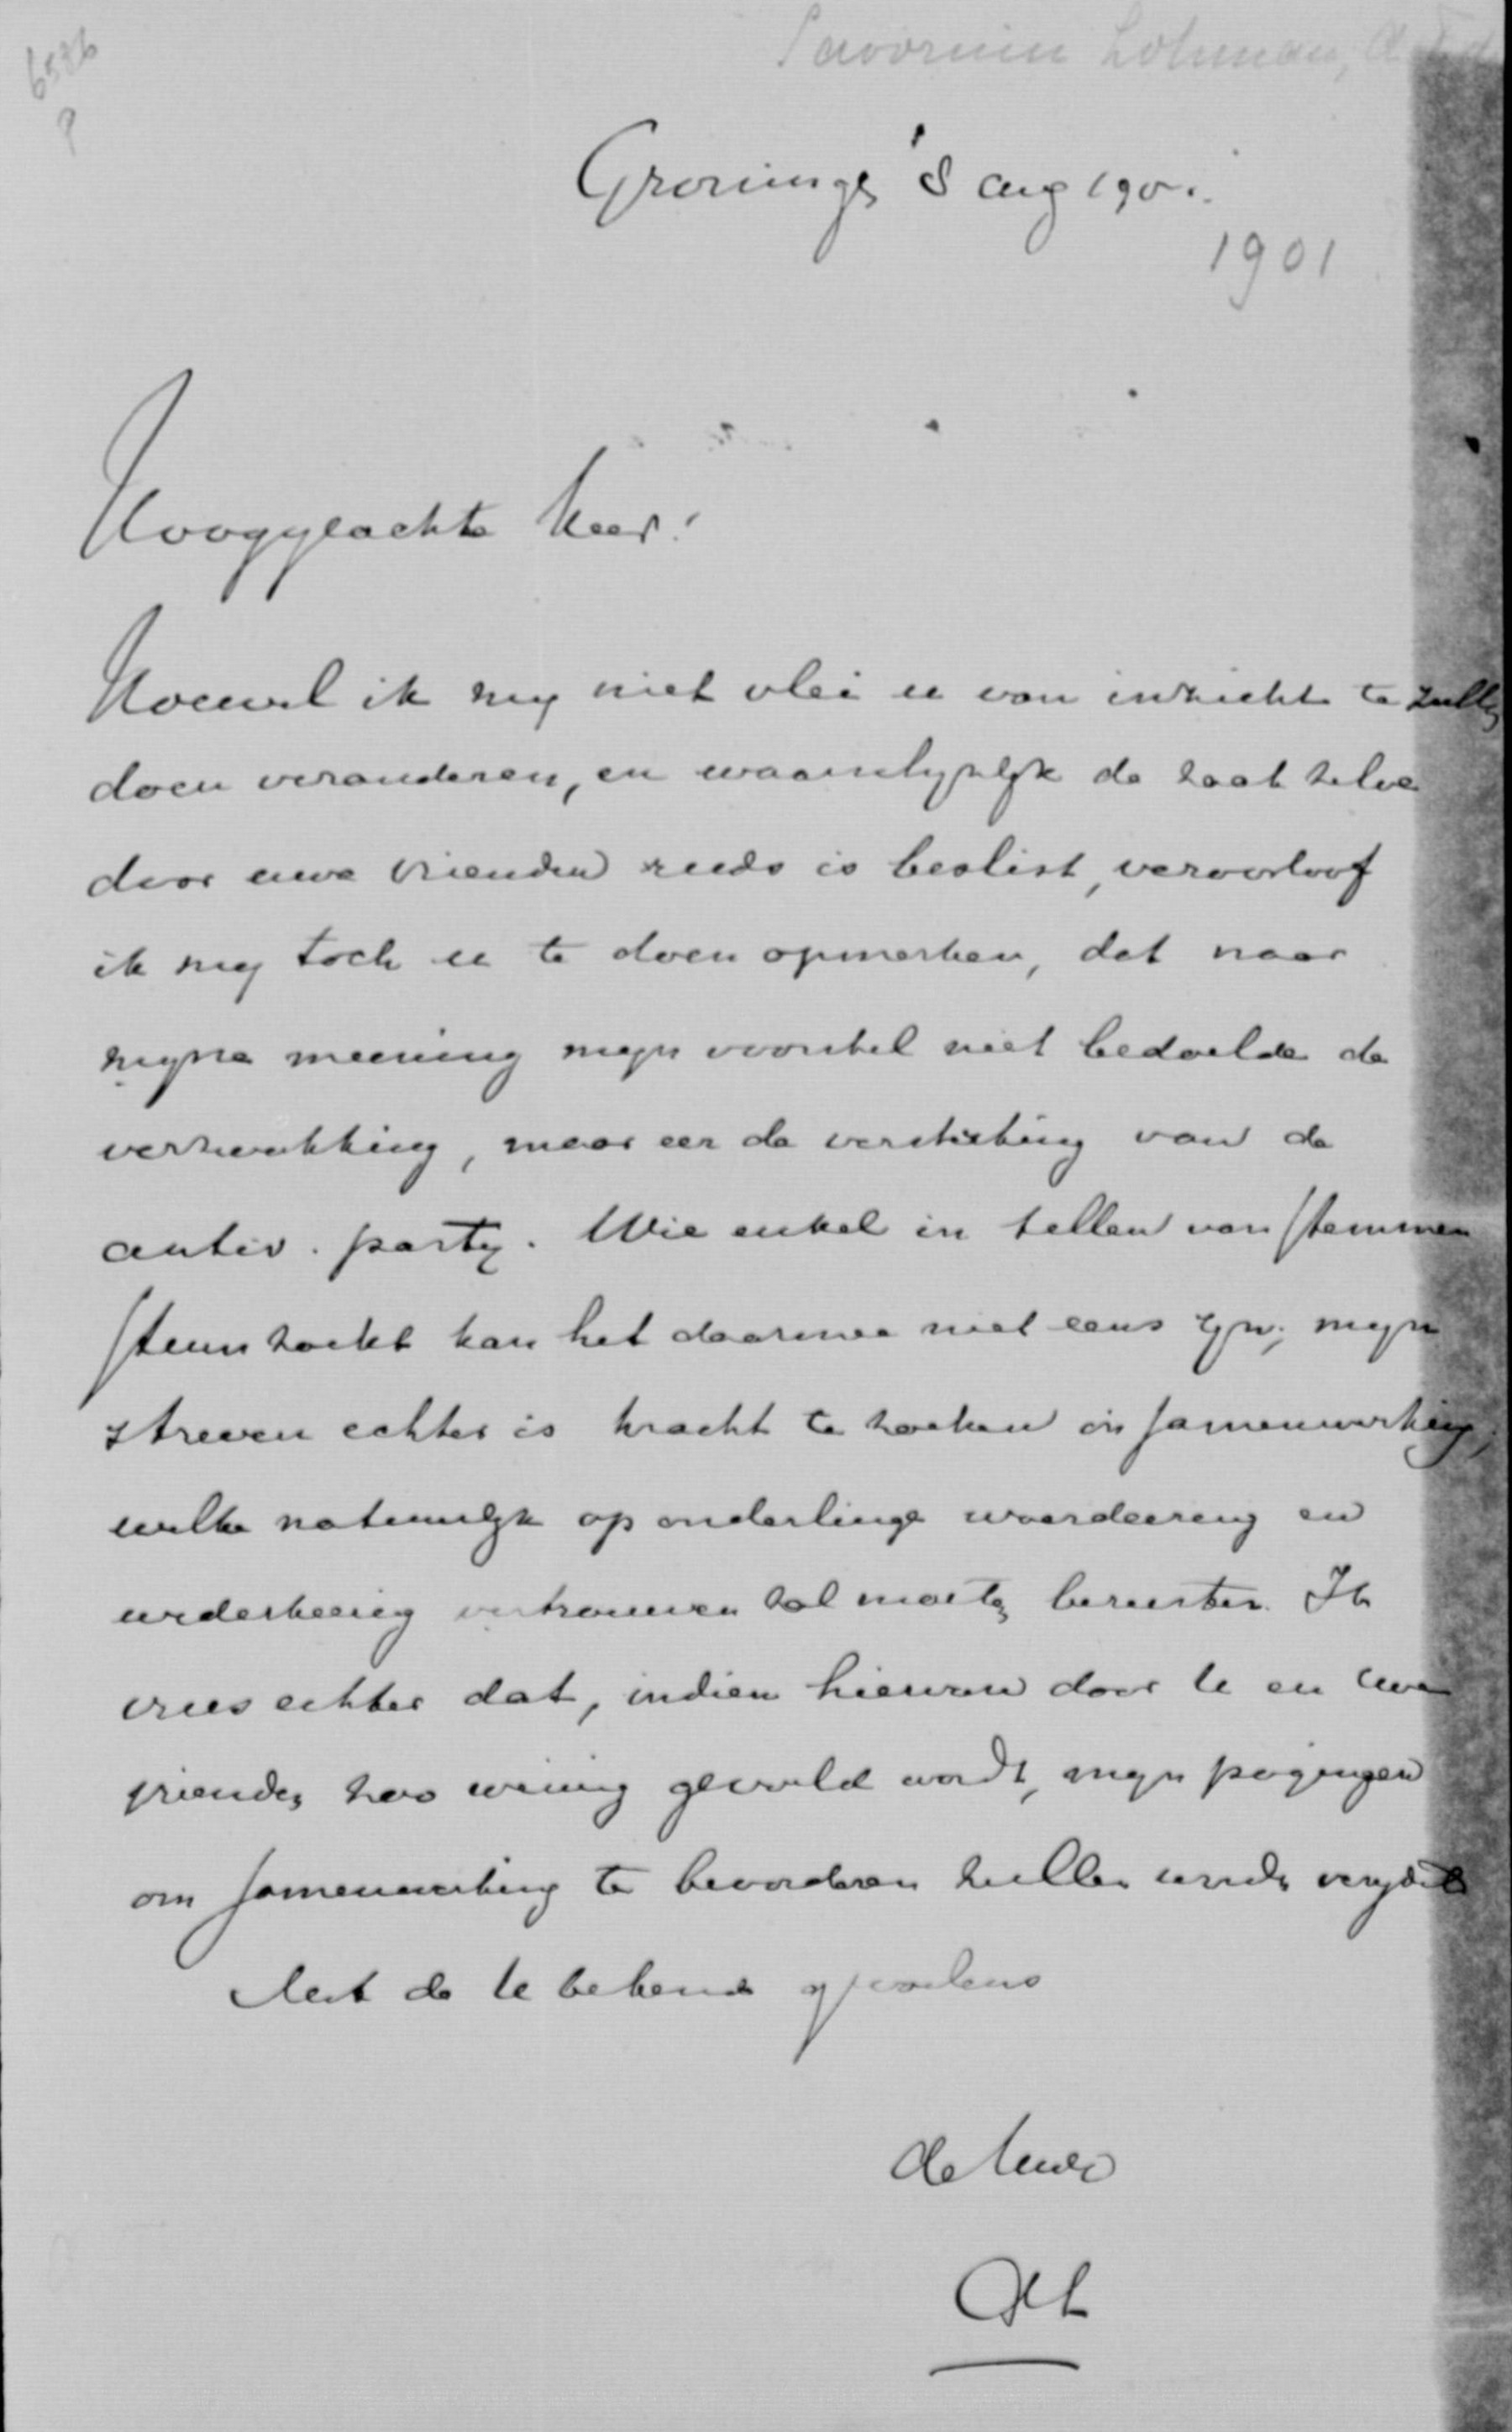 6586
Savornin Lohman, A.F. d
Groningen 8 aug 1901.
1901
Hooggeachte Heer!
Hoewel ik mij niet vlei u van inzicht te zullen
doen veranderen, en waarschijnlijk de zaak zelve
door uwe vrienden reeds is beslist, veroorloof
ik mij toch u te doen opmerken, dat naar
mijne meening mijn voorstel niet bedoelde de
verzwakking, maar eer de versterking van de
antirev. partij. Wie enkel in tellen van stemmen
steun zoekt kan het daarmee niet eens zijn; mijn
streven echter is kracht te zoeken in samenwerking,
welke natuurlijk op onderlinge waardeering en
wederkeerig vertrouwen zal moeten berusten. Ik
vrees echter dat, indien hiervan door U en Uwe
vrienden zoo weinig gevoeld wordt, mijn pogingen
om samenwerking te bevorderen zullen worden verijdeld
Met de U bekende gevoelens
de Uwe
AFL